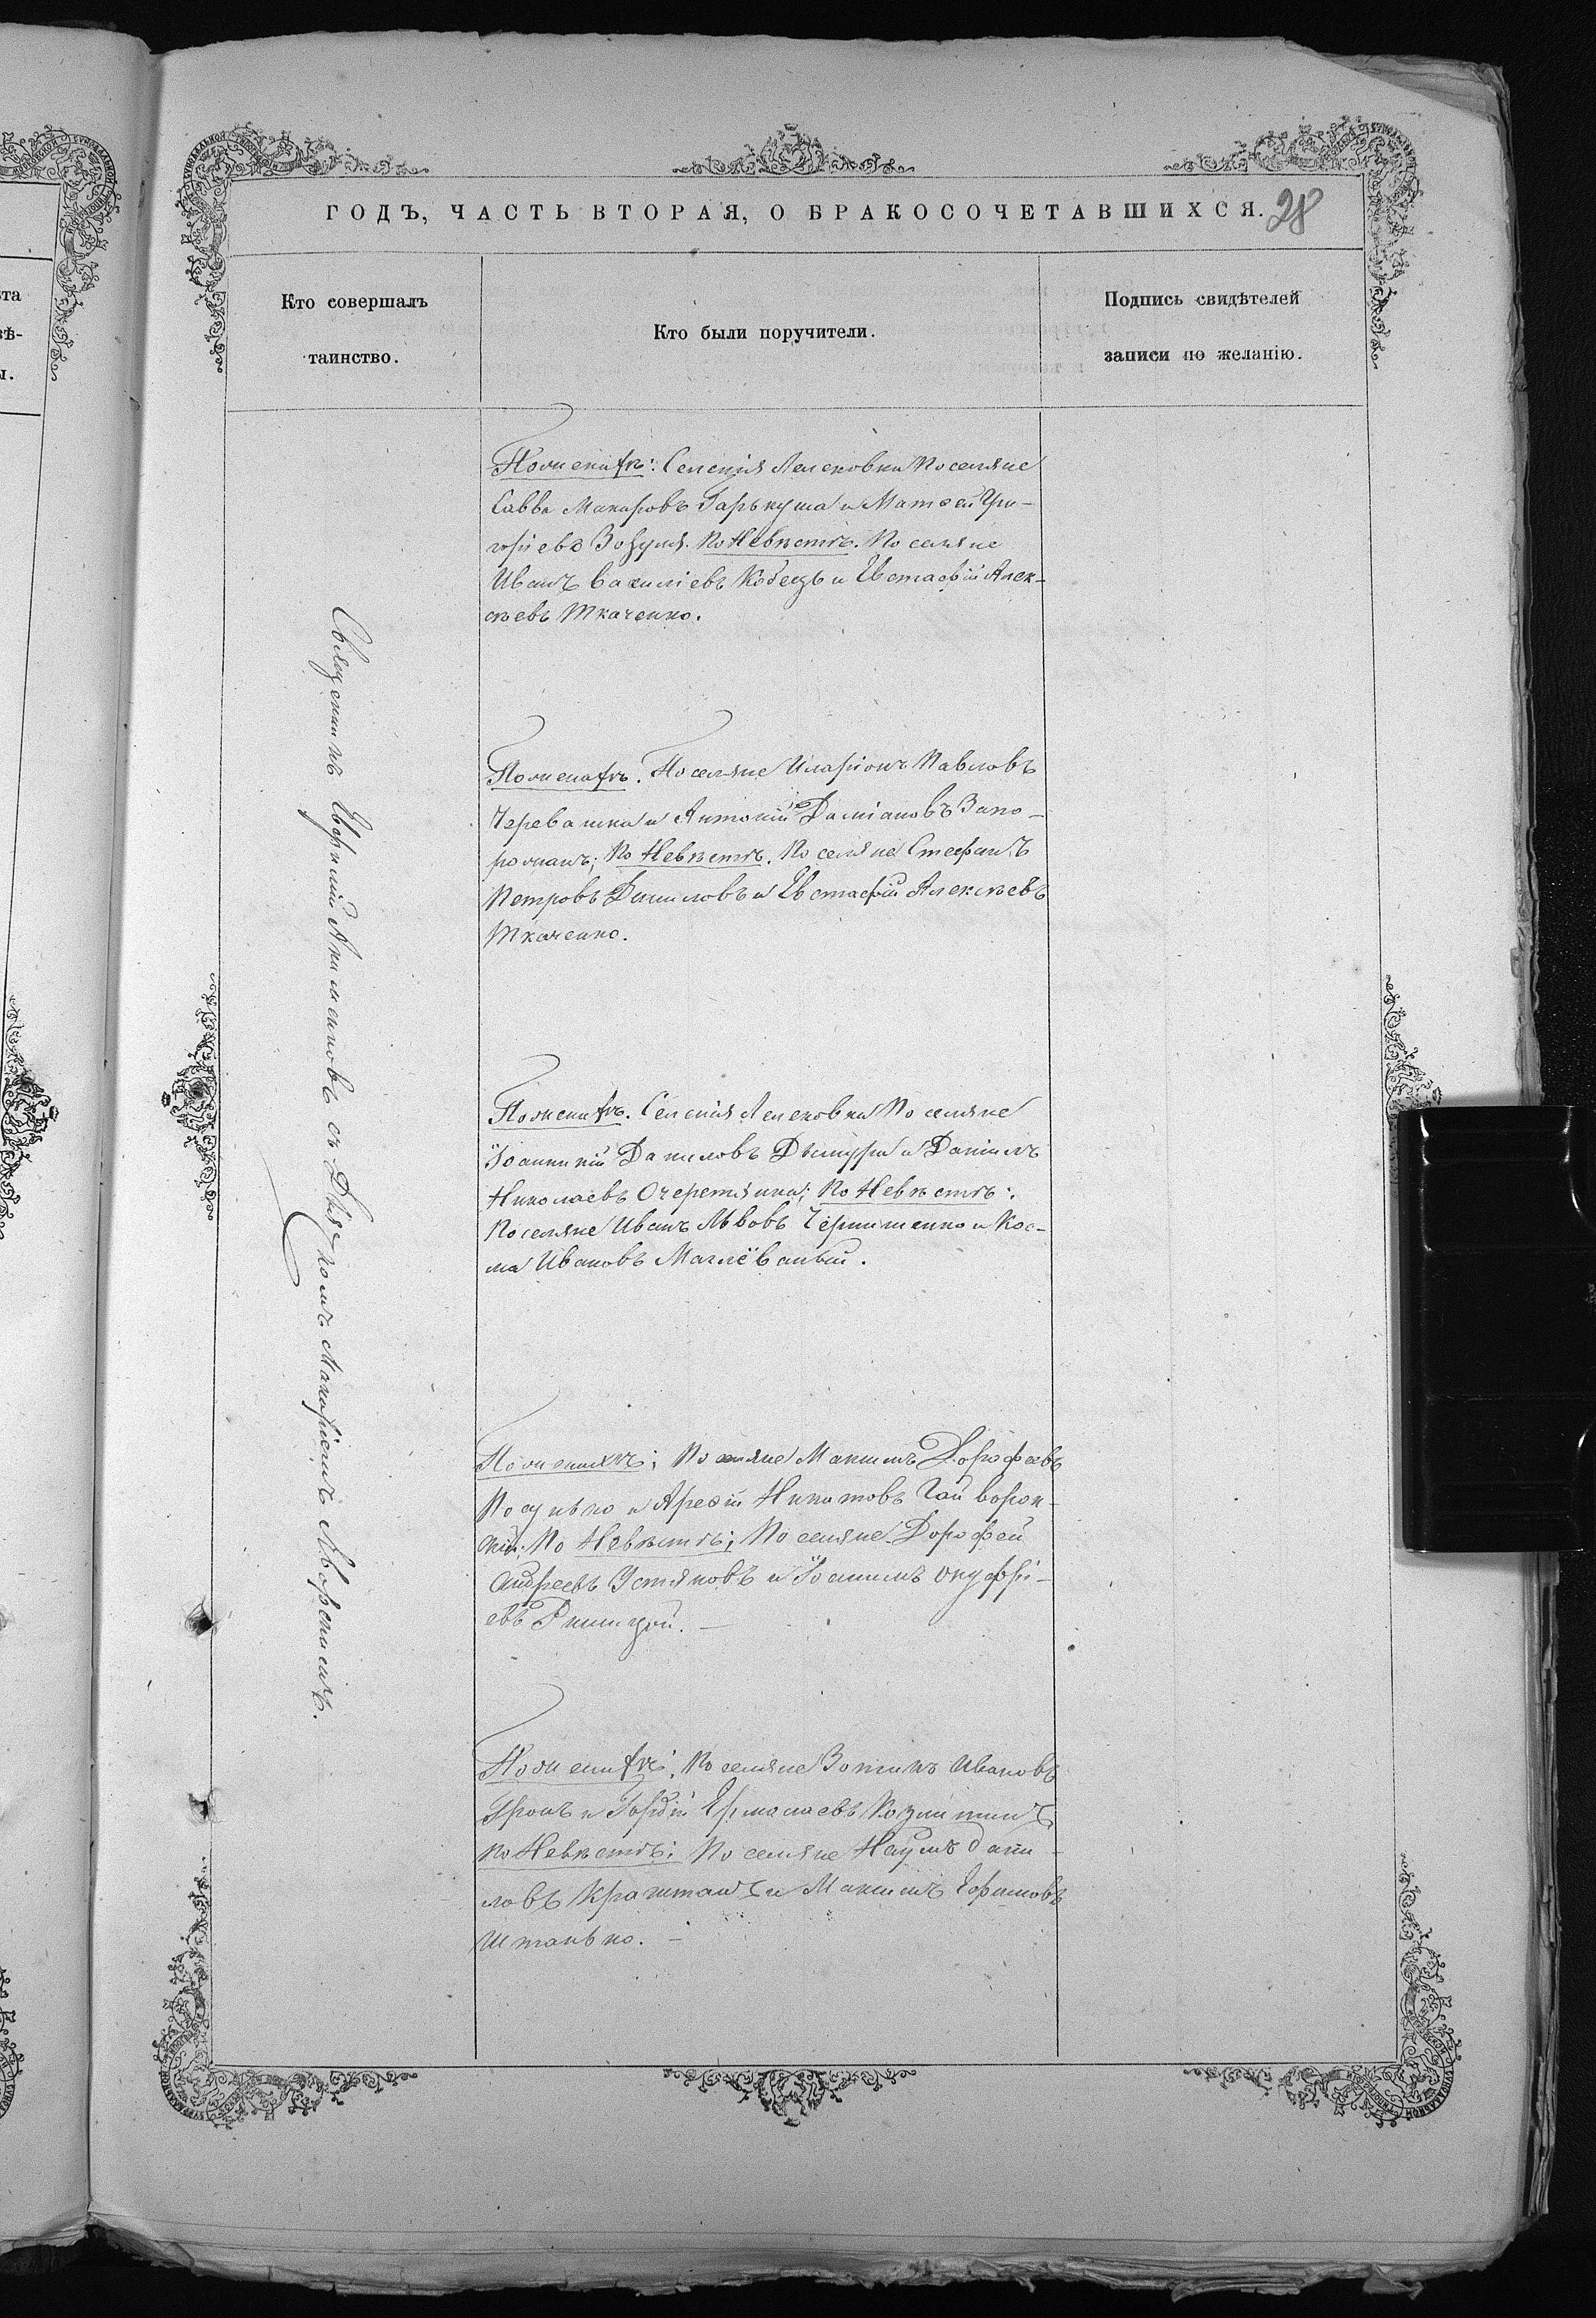 ГОДЪ, ЧАСТЬ ВТОРАЯ, О БРАКОСОЧЕТАВШИХСЯ. 28
Кто совершалъ
таинство.
Кто были поручители.
Подпись свидѣтелей
записи по желанію.
Священникъ Акименковъ съ Діякомъ Макаріемъ
По женихѣ: Селенія Лелековки Поселяне
Савва Макаровъ Гарькуша и Матѳей Гри-
горіевъ Зозуля. По Невѣстѣ. Поселяне
Иванъ Василіевъ Кобецъ и Евстафій Алек-
сѣевъ Ткаченко.
По женихѣ. Поселяне Иларіонъ Павловъ
и Антоній Даміановъ Запо-
рожанъ; По Невѣстѣ. Поселяне Стефанъ
Петровъ Даниловъ и Евстафій Алексѣевъ
Ткаченко.
По женихѣ. Селенія Лелековки Поселяне
Іоанникій Даниловъ и Даніилъ
Николаевъ Очеретяный; По Невѣстѣ:
Поселяне Иванъ Львовъ и Кос-
ма Ивановъ
По женихѣ; Поселяне Максимъ Дорофеевъ
и Арефій Никитовъ Гайворон-
скій; По Невѣстѣ; Поселяне Дорофей
Андреевъ Устяновъ и Іоакимъ Онуфрі-
евъ
По женихѣ; Поселяне Зотикъ Ивановъ
и Гордій Ермолаевъ
по Невѣстѣ; Поселяне Наумъ Дани-
ловъ и Максимъ Ефимовъ
Штанько.
ѣта
вѣ-
ы.